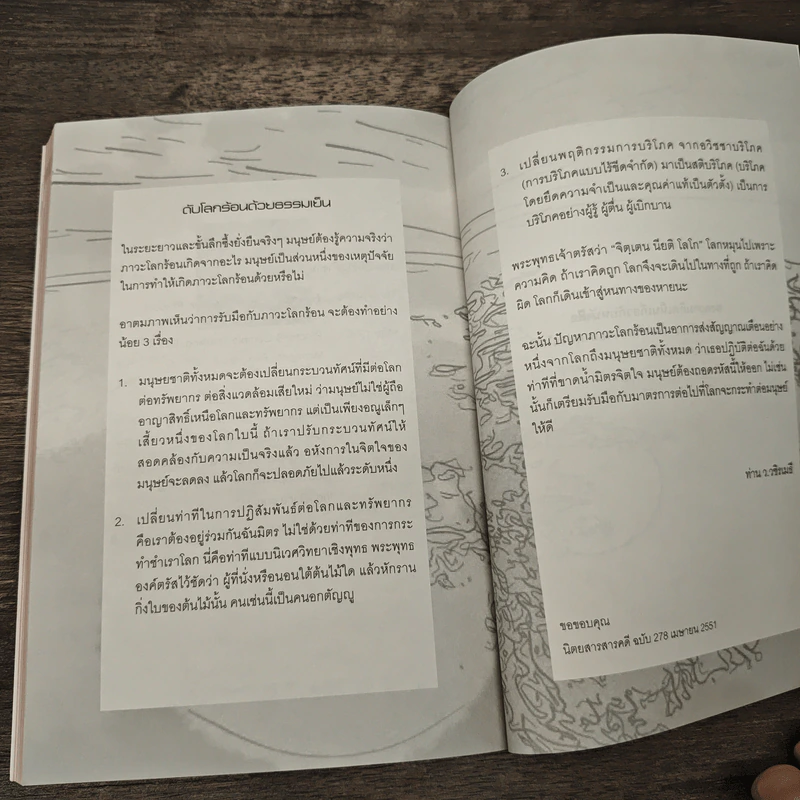 ดับโลกร้อนด้วยธรรมเย็น
ในระยะยาวและชั้นลึกซึ้งยั่งยืนจริงๆ มนุษย์ต้องรู้ความจริงว่า
ภาวะโลกร้อนเกิดจากอะไร มนุษย์เป็นส่วนหนึ่งของเหตุปัจจัย
ในการทำให้เกิดภาวะโลกร้อนด้วยหรือไม่
อาตมภาพเห็นว่าการรับมือกับภาวะโลกร้อน จะต้องทำอย่าง
น้อย 3 เรื่อง
1. มนุษยชาติทั้งหมดจะต้องเปลี่ยนกระบวนทัศน์ที่มีต่อโลก
ต่อทรัพยากร ต่อสิ่งแวดล้อมเสียใหม่ ว่ามนุษย์ไม่ใช่ผู้ถือ
อาญาสิทธิ์เหนือโลกและทรัพยากร แต่เป็นเพียงอณูเล็กๆ
เสี้ยวหนึ่งของโลกใบนี้ ถ้าเราปรับกระบวนทัศน์ให้
สอดคล้องกับความเป็นจริงแล้ว อหังการในจิตใจของ
มนุษย์จะลดลง แล้วโลกก็จะปลอดภัยไปแล้วระดับหนึ่ง
2. เปลี่ยนท่าทีในการปฏิสัมพันธ์ต่อโลกและทรัพยากร
คือเราต้องอยู่ร่วมกันฉันมิตร ไม่ใช่ด้วยท่าทีของการกระ
ทำชำเราโลก นี่คือท่าทีแบบนิเวศวิทยาเชิงพุทธ พระพุทธ
องค์ตรัสไว้ชัดว่า ผู้ที่นั่งหรือนอนใต้ต้นไม้ใด แล้วหักราน
กิ่งใบของต้นไม้นั้น คนเช่นนี้เป็นคนอกตัญญู
3. เปลี่ยนพฤติกรรมการบริโภค จากอวิชชาบริโภค
(การบริโภคแบบไร้ขีดจำกัด) มาเป็นสติบริโภค (บริโภค
โดยยึดความจำเป็นและคุณค่าแท้เป็นตัวตั้ง) เป็นการ
บริโภคอย่างผู้รู้ ผู้ตื่น ผู้เบิกบาน
พระพุทธเจ้าตรัสว่า “จิตฺเตน นียติ โลโก” โลกหมุนไปเพราะ
ความคิด ถ้าเราคิดถูก โลกจึงจะเดินไปในทางที่ถูก ถ้าเราคิด
ผิด โลกก็เดินเข้าสู่หนทางของหายนะ
ฉะนั้น ปัญหาภาวะโลกร้อนเป็นอาการส่งสัญญาณเตือนอย่าง
หนึ่งจากโลกถึงมนุษยชาติทั้งหมด ว่าเธอปฏิบัติต่อฉันด้วย
ท่าทีที่ขาดน้ำมิตรจิตใจ มนุษย์ต้องถอดรหัสนี้ให้ออก ไม่เช่น
นั้นก็เตรียมรับมือกับมาตรการต่อไปที่โลกจะกระทำต่อมนุษย์
ให้ดี
ท่าน ว.วชิรเมธี
ขอขอบคุณ
นิตยสารสารคดี ฉบับ 278 เมษายน 2551